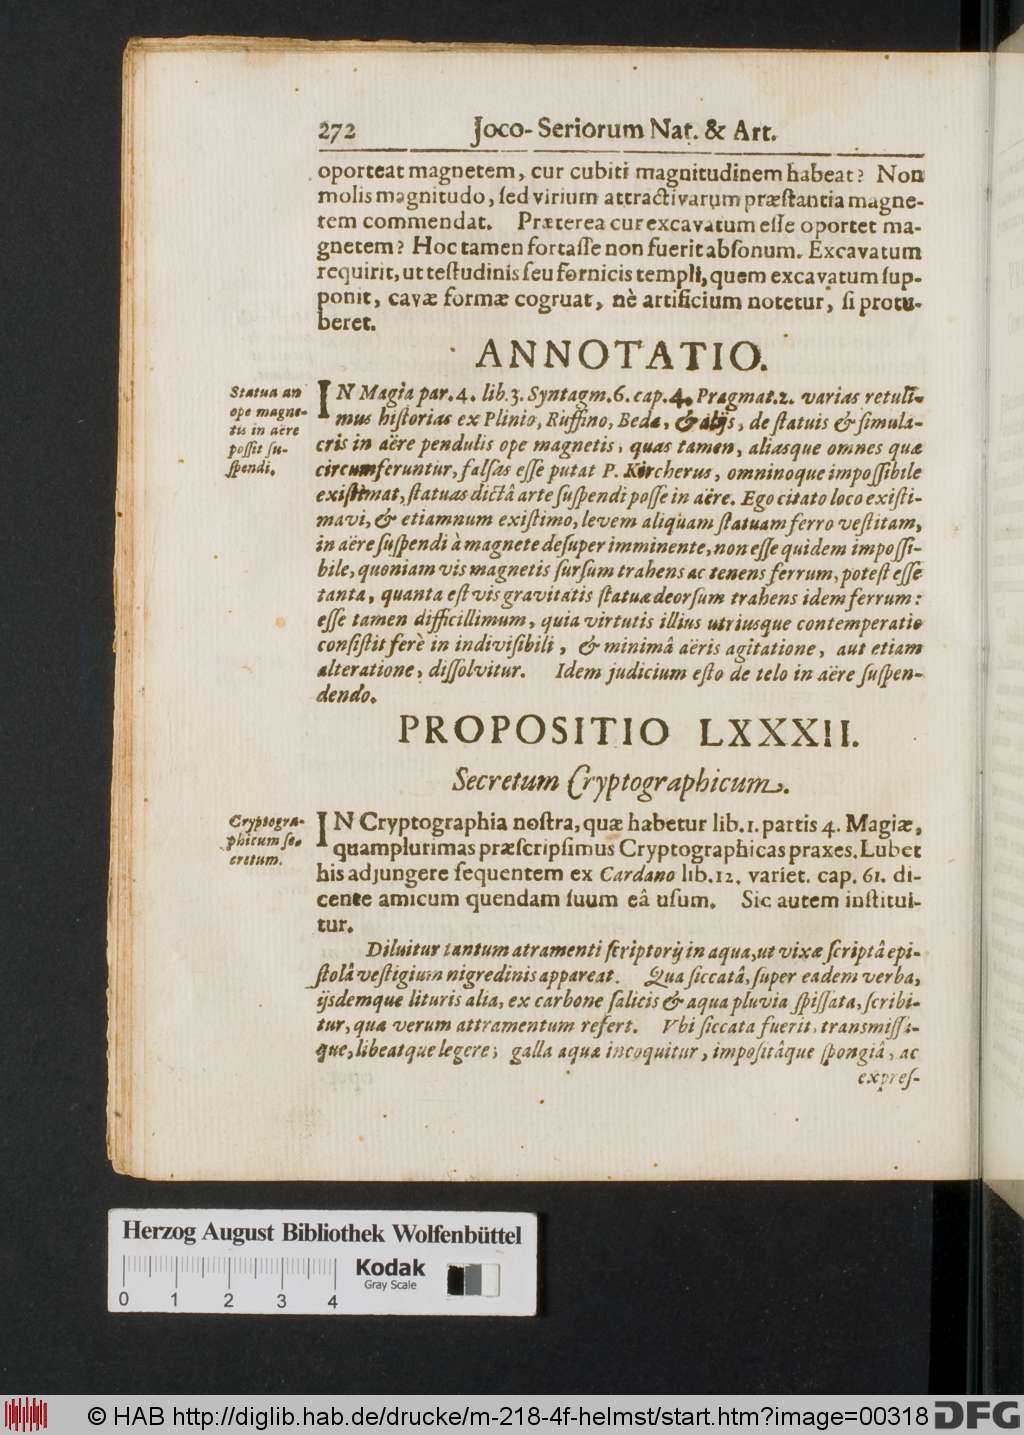 272 Joco-Seriorum Nat. & Art.
oporteat magnetem, cur cubiti magnitudinem habeat? Non
molis magnitudo, ſed virium attractivarum præſtantia magne-
tem commendat. Præterea cur excavatum eſſe oportet ma-
gnetem? Hoc tamen fortaſſe non fuerit abſonum. Excavatum
requirit, ut teſtudinis ſeu fornicis templi, quem excavatum ſup-
ponit, cavæ formæ cogruat, nè artificium notetur, ſi protu-
beret.
ANNOTATIO.
Statua an
ope magne-
tis in aëre
poſſit ſu-
ſpendi.
IN Magia par. 4. lib. 3. Syntagm. 6. cap. 4. Pragmat. 2. varias retuli-
mus hiſtorias ex Plinio, Ruffino, Beda, & alijs, de ſtatuis & ſimula-
cris in aëre pendulis ope magnetis, quas tamen, aliasque omnes quæ
circumferuntur, falſas eſſe putat P. Kircherus, omninoque impoſſibile
exiſtimat, ſtatuas dictâ arte ſuſpendi poſſe in aëre. Ego citato loco exiſti-
mavi, & etiamnum exiſtimo, levem aliquam ſtatuam ferro veſtitam,
in aëre ſuſpendi à magnete deſuper imminente, non eſſe quidem impoſſi-
bile, quoniam vis magnetis ſurſum trahens ac tenens ferrum, poteſt eſſe
tanta, quanta eſt vis gravitatis ſtatuæ deorſum trahens idem ferrum:
eſſe tamen difficillimum, quia virtutis illius utriusque contemperatio
conſiſtit ferè in indiviſibili, & minimâ aëris agitatione, aut etiam
alteratione, diſſolvitur. Idem judicium eſto de telo in aëre ſuſpen-
dendo.
PROPOSITIO LXXXII.
Secretum Cryptographicum.
Cryptogra-
phicum ſe-
cretum.
IN Cryptographia noſtra, quæ habetur lib. 1. partis 4. Magiæ,
quamplurimas præſcripſimus Cryptographicas praxes. Lubet
his adjungere ſequentem ex Cardano lib. 12. variet. cap. 61. di-
cente amicum quendam ſuum eâ uſum. Sic autem inſtitui-
tur.
Diluitur tantum atramenti ſcriptorij in aqua, ut vix æ ſcriptâ epi-
ſtolâ veſtigium nigredinis appareat. Qua ſiccatâ, ſuper eadem verba,
ijsdemque lituris alia, ex carbone ſalicis & aqua pluvia ſpiſſata, ſcribi-
tur, quæ verum attramentum refert. Vbi ſiccata fuerit, transmiſſa-
que, libeatque legere; galla aquæ incoquitur, impoſitâque ſpongiâ, ac
expreſ-
Herzog August Bibliothek Wolfenbüttel
Kodak
Gray Scale
0 1 2 3 4
© HAB http://diglib.hab.de/drucke/m-218-4f-helmst/start.htm?image=00318 DFG